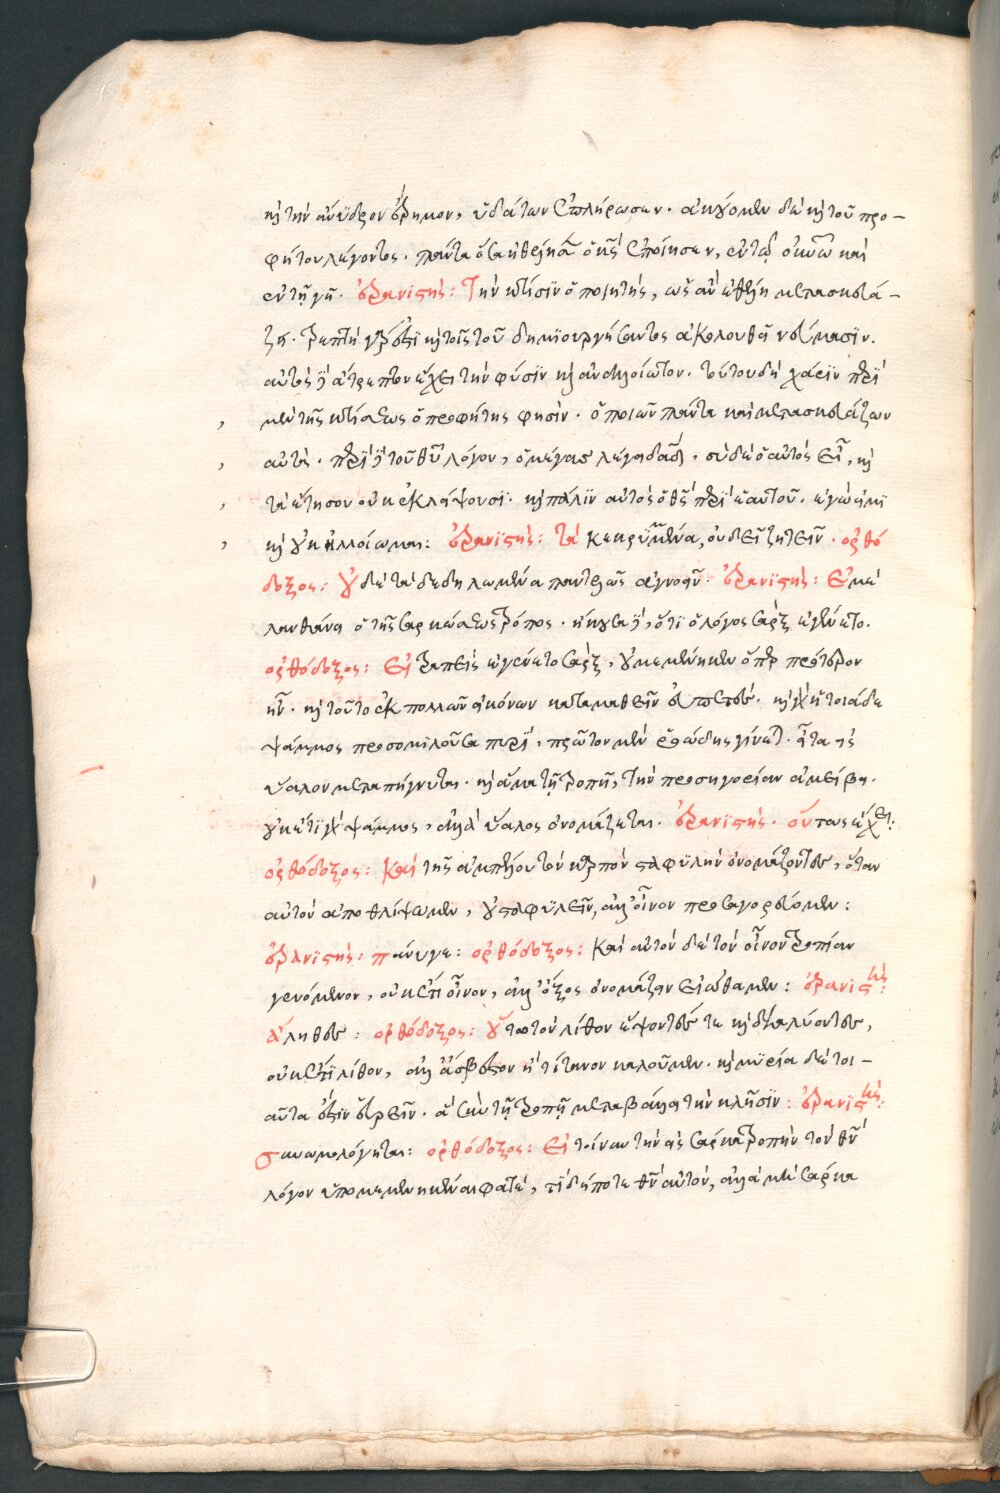 κὶ τὴν ἄνυδρον ἔρημον, ὑδάτων ἐπλήρωσεν. ἀκούομεν δὲ κὶ τοῦ προ–
φήτου λέγοντος. πάντα ὅσα ἠθέλησεν ὁ κς ἐποίησεν, ἐν τῷ οὐνω καὶ
ἐν τῇ γῇ. ἐρανιστής: Τὴν κτίσϊν ὁ ποιητὴς, ὡς ἂν ἐθέλῃ μετασκευά–
ζει. τρεπτὴ γάρ ἐστϊ κὶ τοῖς τοῦ δημϊουργήσαντος ἀκολουθεῖ νεύμασϊν.
αὐτὸς δὲ ἄτρεπτον ἔχει τὴν φύσϊν κὶ ἀναλλοίωτον. τούτου δὴ χάρϊν περὶ
μὲν τῆς κτίσεως ὁ προφήτης φησὶν. ὁ ποιῶν πάντα καὶ μετασκευάζων
αὐτὰ. περὶ δὲ τοῦ θῦ λόγου, ὁ μέγας λέγει δαδ, σὺ δὲ ὁ αὐτὸς εἶ, κὶ
τὰ ἔτη σου οὐκ ἐκλείψουσϊ. κὶ πάλϊν αὐτὸς ὁ θς περὶ ἑαυτοῦ. ἐγώ εἰμϊ
κὶ οὐκ ἠλλοίωμαι: ἐρανϊστής: τὰ κεκρυμμένα, οὐ δεῖ ζητεῖν. ὀρθό
δοξος: οὐδὲ τὰ δεδηλωμένα παντελῶς ἀγνοεῖν. ἐρανϊστής: Ἐμὲ
λανθάνει ὁ τῆς σαρκώσεως τρόπος. ἤκουσα δὲ, ὅτϊ ὁ λόγος σὰρξ ἐγένετο.
ὀρθόδοξος: Εἰ τραπεὶς ἐγένετο σὰρξ, οὐ μεμένηκεν ὅπερ πρότερον
ἦν. κὶ τοῦτο ἐκ πολλῶν εἰκόνων καταμαθεῖν εὐπετές. κὶ γὰρ ἡ τοιάδε
ψάμμος προσομιλοῦσα πυρὶ, πρῶτον μὲν ῥοώδης γίνεται. εἶτα εἰς
ὕαλον μεταπήγνυται. κὶ ἅμα τῇ τροπῇ, τὴν προσηγορίαν ἀμείβει.
οὐκέτϊ γὰρ ψάμμος, ἀλλὰ ὕαλος ὀνομάζεται. ἐρανϊστής. οὕτως ἔχει:
ὀρθόδοξος: Καὶ τῆς ἀμπέλου τὸν καρπὸν σταφυλὴν ὀνομάζοντες, ὅταν
αὐτὸν ἀποθλίψωμεν, οὐ σταφυλὴν, ἀλλ' οἶνον προσαγορεύομεν:
ἐρανϊστής: πάνυγε: ὀρθόδοξος: Καὶ αὐτὸν δὲ τὸν οἶνον τροπίαν
γενόμενον, οὐκέτι οἶνον, ἀλλ' ὄξος ὀνομάζειν εἰώθαμεν: ἐρανιστὴς:
ἀληθές: ὀρθόδοξος: οὕτω τὸν λίθον ἕψοντές τε κὶ διαλύοντες,
οὐκέτϊ λίθον, ἀλλ' ἄσβεστον ἢ τίτανον καλοῦμεν. κὶ μυρία δὲ τοι–
αῦτα ἐστϊν εὑρεῖν. ἃ σὺν τῇ τροπῇ μεταβάλλει τὴν κλῆσϊν: ἐρανιστὴς:
συνωμολόγηται: ὀρθόδοξος: Εἰ τοίνυν τὴν εἰς σάρκα τροπὴν τὸν θν
λόγον ὑπομεμενηκέναι φατὲ, τί δήποτε θν αὐτὸν, ἀλλὰ μὴ σάρκα